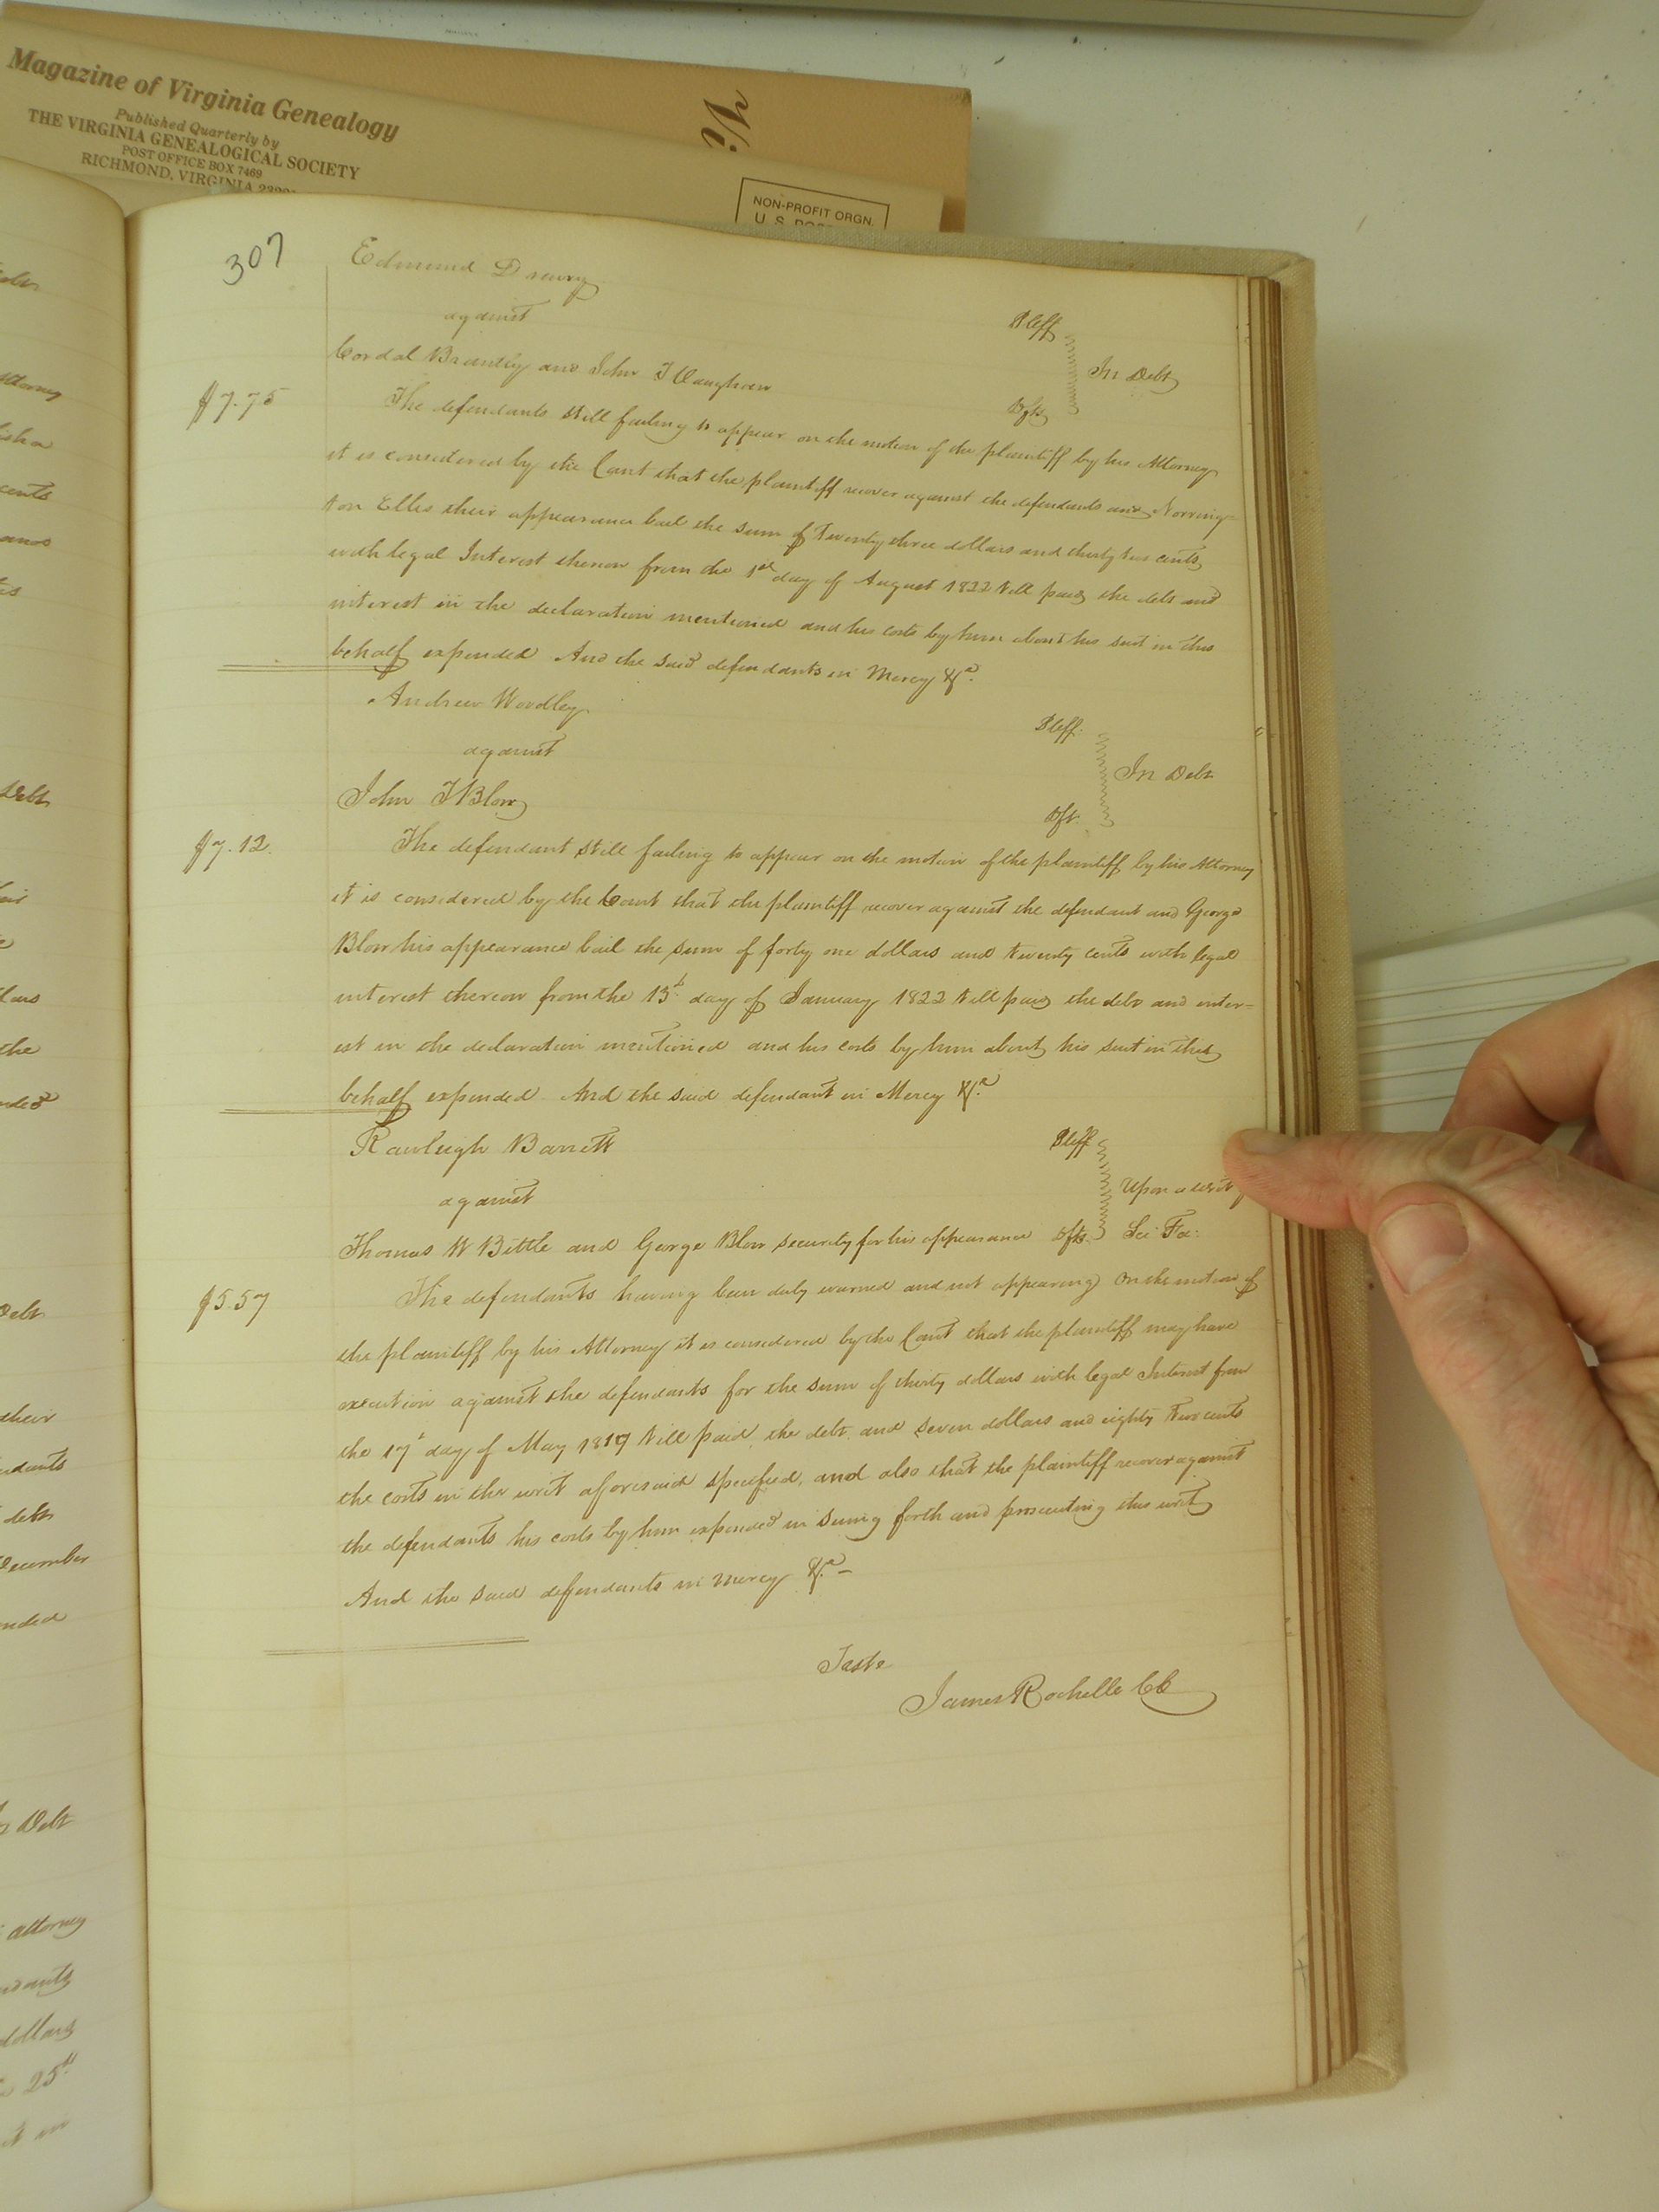 Magazine of Virginia Genealogy
Published Quarterly by
THE VIRGINIA GENEALOGICAL SOCIETY
POST OFFICE BOX 7469
RICHMOND, VIRGINIA
NON-PROFIT ORGN.
U. S.
307
Edmund Drewry
against
Pleff
In Debt
Cordal Brantley and John T Vaughan
Dfts
$7.75
The defendants still failing to appear on the motion of the plaintiff by his Attorney
it is considered by the Court that the plaintiff recover against the defendants and Norring=
ton Ellis their appearance bail the sum of Twenty three dollars and thirty two cents
with legal Interest thereon from the 1st day of August 1822 till paid the debt and
interest in the declaration mentioned and his costs by him about his suit in this
behalf expended And the said defendants in Mercy &c.
Andrew Woodley
Pleff.
against
In Debt
John T Blow
Dft.
$7.12.
The defendant still failing to appear on the motion of the plaintiff by his Attorney
it is considered by the Court that the plaintiff recover against the defendant and George
Blow his appearance bail the sum of forty one dollars and twenty cents with legal
interest thereon from the 13th day of January 1822 till paid the debt and inter=
est in the declaration mentioned and his costs by him about his suit in this
behalf expended And the said defendant in Mercy &c.
Rawleigh Barrett
Pleff
against
Upon a writ
Thomas W Bittle and George Blow security for his appearance Dfts. Sci: Fa:
$5.57
The defendants having been duly warned and not appearing On the motion of
the plaintiff by his Attorney it is considered by the Court that the plaintiff may have
execution against the defendants for the sum of thirty dollars with legal Interest from
the 17th day of May 1819 till paid, the debt, and seven dollars and eighty two cents
the costs in the writ afforesaid specified, and also that the plaintiff recover against
the defendants his costs by him expended in suing forth and prosecuting this writ
And the said deffendants in mercy &c. –
Teste
James Rochelle CC